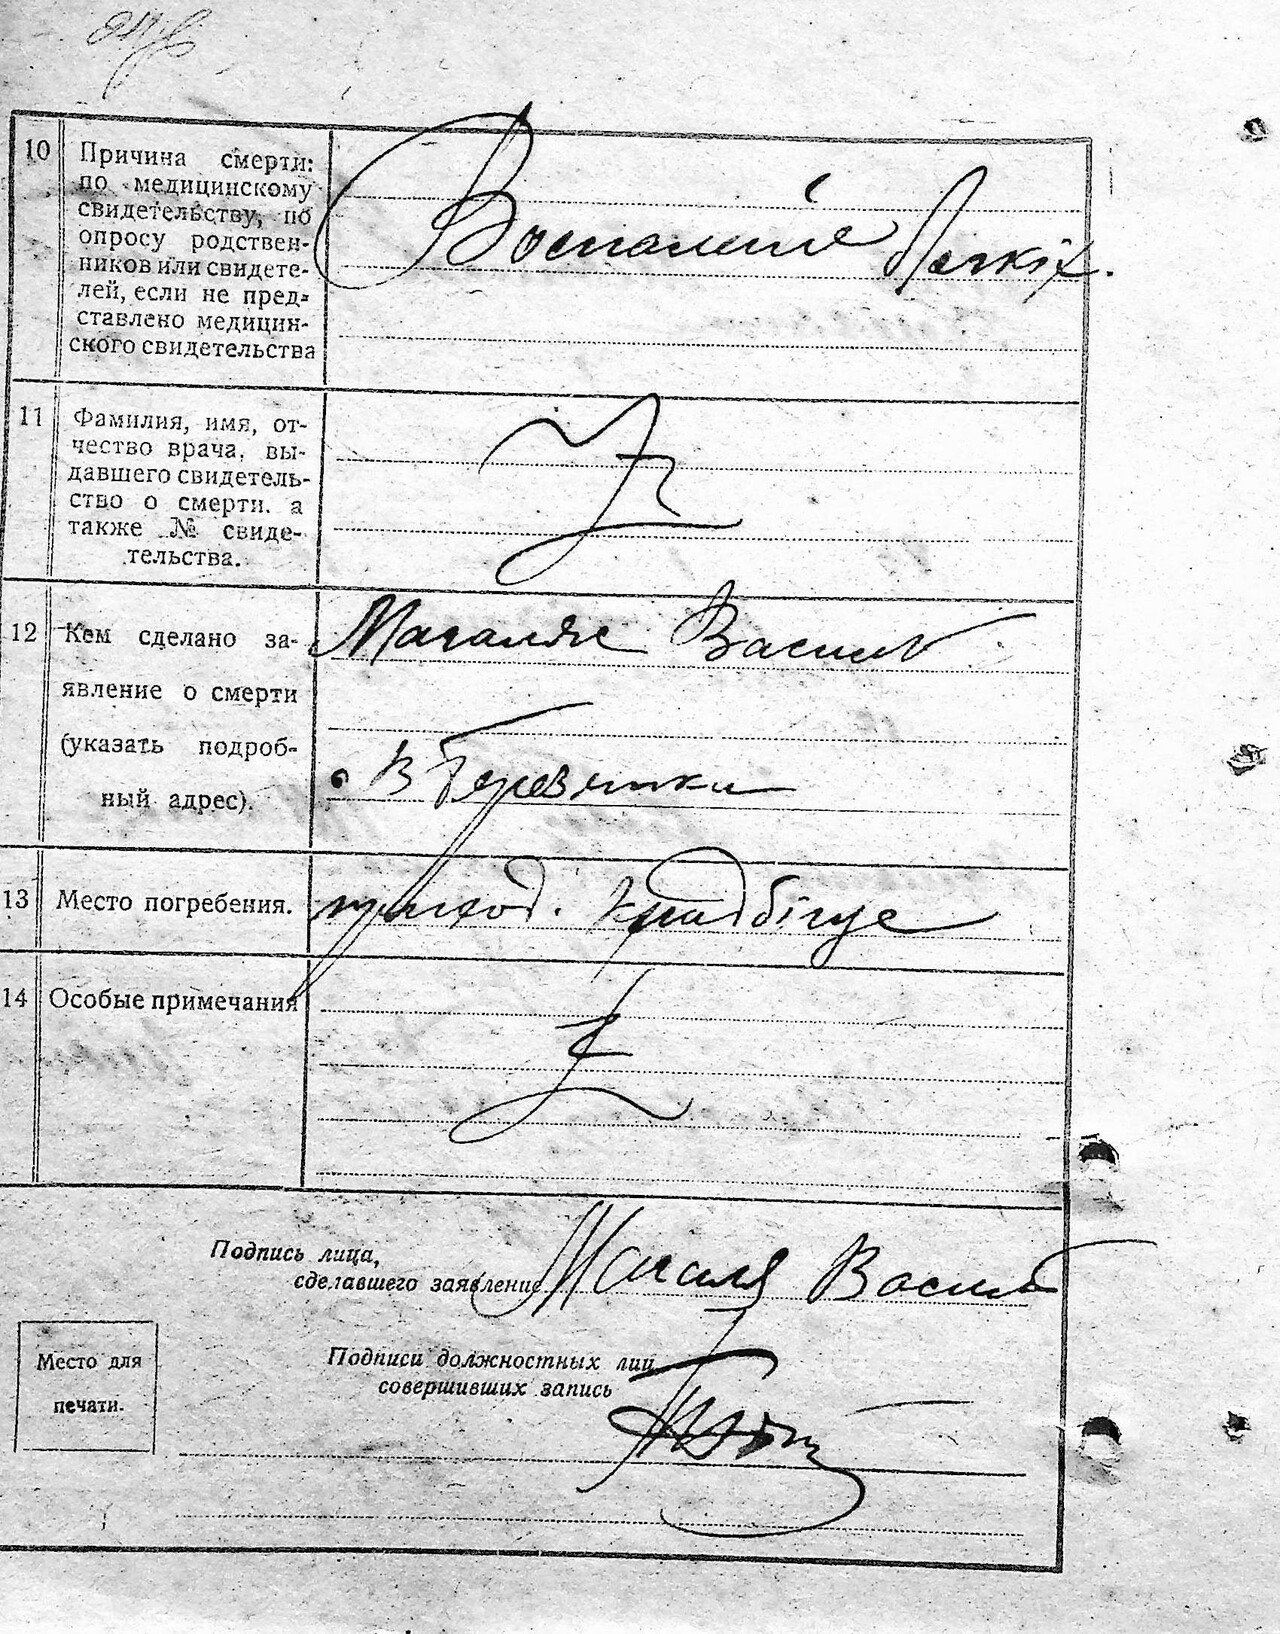 10 Причина смерти:
по медицинскому
свидетельству, по
опросу родствен-
ников или свидете-
лей, если не пред-
ставлено медицин-
ского свидетельства
Воспаление Легкіх.
11 Фамилия, имя, от-
чество врача, вы-
давшего свидетель-
ство о смерти, а
также № свиде-
тельства.
12 Кем сделано за-
явление о смерти
(указать подроб-
ный адрес).
Василь
в Березянки
13 Место погребения.
приход. кладбіще
14 Особые примечания
Подпись лица,
сделавшего заявление
Василь
Место для
печати.
Подписи должностных лиц
совершивших запись